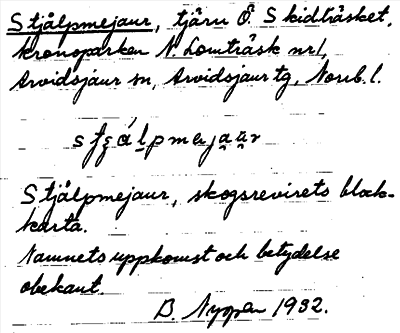 Stjålpmejaur, tjärn Ö. Skidträsket,
kronoparken N. Lomträsk nr 1,
Arvidsjaur sn, Arvidsjaur tg, Norrb. l.
Stjålpmejaur, skogsrevirets block-
karta.
Namnets uppkomst och betydelse
obekant.
B. 1932.